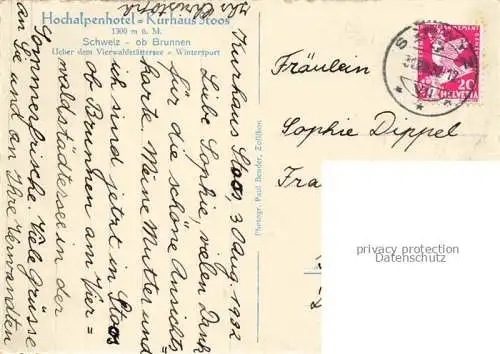 Hochalpenhotel - Kurhaus Stoos
1300 m ü. M.
Schweiz - ob Brunnen
Ueber dem Vierwaldstättersee - Wintersport
Kurhaus Stoos, 30 Aug. 1932
Liebe Sophie, vielen Dank
für die schöne Ansichts-
karte. Meine Mutter und
ich sind jetzt in Stoos
ob Brunnen am Vier=
waldstädtersee in der
Sommerfrische. Viele Grüsse
an Sie und an Ihre Verwandten
Ihr Christoph
Photogr. Paul Bender, Zollikon
Fräulein
Sophie Dippel
Fra
20
HELVETIA
privacy protection
Datenschutz